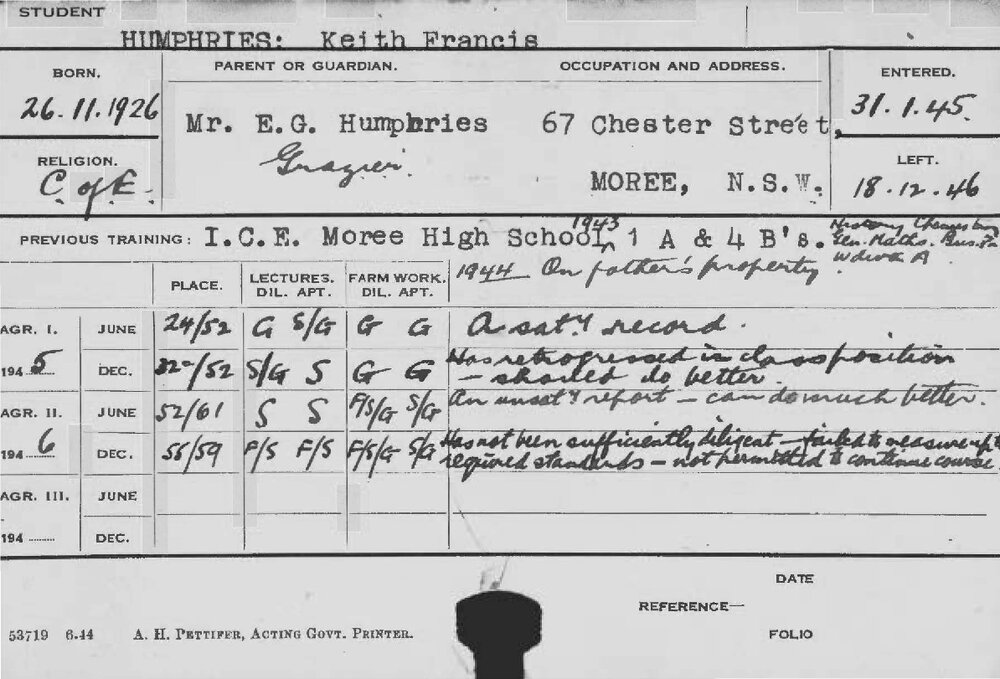 STUDENT
HUMPHRIES: Keith Francis
BORN.
26.11.1926
PARENT OR GUARDIAN.
OCCUPATION AND ADDRESS.
ENTERED.
31.1.45.
Mr. E.G. Humphries 67 Chester Street,
Grazier.
MOREE, N.S.W.
RELIGION.
C of E.
LEFT.
18.12.46
PREVIOUS TRAINING: I.C.E. Moree High School, 1943 1 A & 4 B's. History
Gen. Maths. Bus. Pr.
A
1944 On father's property
PLACE. LECTURES. DIL. APT. FARM WORK. DIL. APT.
AGR. I. JUNE 24/52 G S/G G G A sat'y record.
1945 DEC. /52 S/G S G G Has retrogressed in class position
– should do better.
AGR. II. JUNE 52/61 S S F/S/G S/G An unsat'y report – can do much better.
1946 DEC. /59 F/S F/S F/S/G S/G Has not been sufficiently diligent – failed to measure up to
required standards – not permitted to continue course
AGR. III. JUNE
194 DEC.
DATE
REFERENCE—
FOLIO
53719 6.44 A. H. PETTIFER, ACTING GOVT. PRINTER.